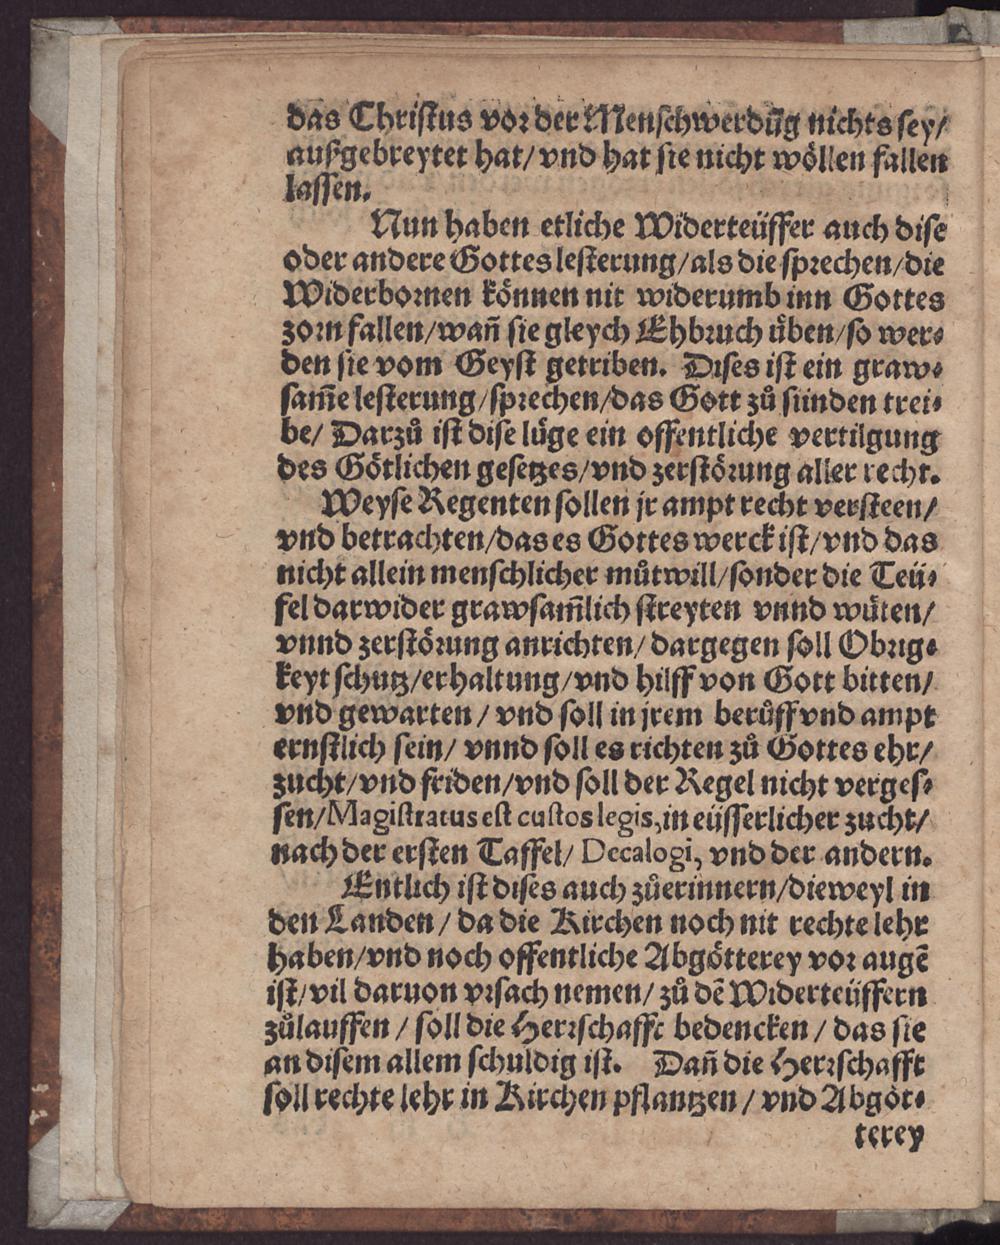 das Christus vor der Menschwerdūg nichts sey/
außgebreytet hat/ vnd hat sie nicht wöllen fallen
lassen.
Nun haben etliche Widerteüffer auch dise
oder andere Gottes lesterung/ als die sprechen/ die
Widerbornen können nit widerumb inn Gottes
zorn fallen/ wañ sie gleych Ehbruch üben/ so wer⸗
den sie vom Geyst getriben. Dises ist ein graw⸗
sam̃e lesterung/ sprechen/ das Gott zů sünden trei⸗
be/ Darzů ist dise lüge ein offentliche vertilgung
des Götlichen gesetzes/ vnd zerstörung aller recht.
Weyse Regenten sollen jr ampt recht versteen/
vnd betrachten/ das es Gottes werck ist/ vnd das
nicht allein menschlicher můtwill/ sonder die Teü⸗
fel darwider grawsam̃lich streyten vnnd wüten/
vnnd zerstörung anrichten/ dargegen soll Obrig⸗
keyt schutz/ erhaltung/ vnd hilff von Gott bitten/
vnd gewarten/ vnd soll in jrem berůff vnd ampt
ernstlich sein/ vnnd soll es richten zů Gottes ehr/
zucht/ vnd friden/ vnd soll der Regel nicht verges⸗
sen/ Magistratus est custos legis, in eüsserlicher zucht/
nach der ersten Taffel/ Decalogi, vnd der andern.
Entlich ist dises auch zůerinnern/ dieweyl in
den Landen/ da die Kirchen noch nit rechte lehr
haben/ vnd noch offentliche Abgötterey vor augē
ist/ vil daruon vrsach nemen/ zů dē Widerteüffern
zůlauffen/ soll die Herrschafft bedencken/ das sie
an disem allem schuldig ist. Dañ die Herrschafft
soll rechte lehr in Kirchen pflantzen/ vnd Abgöt⸗
terey